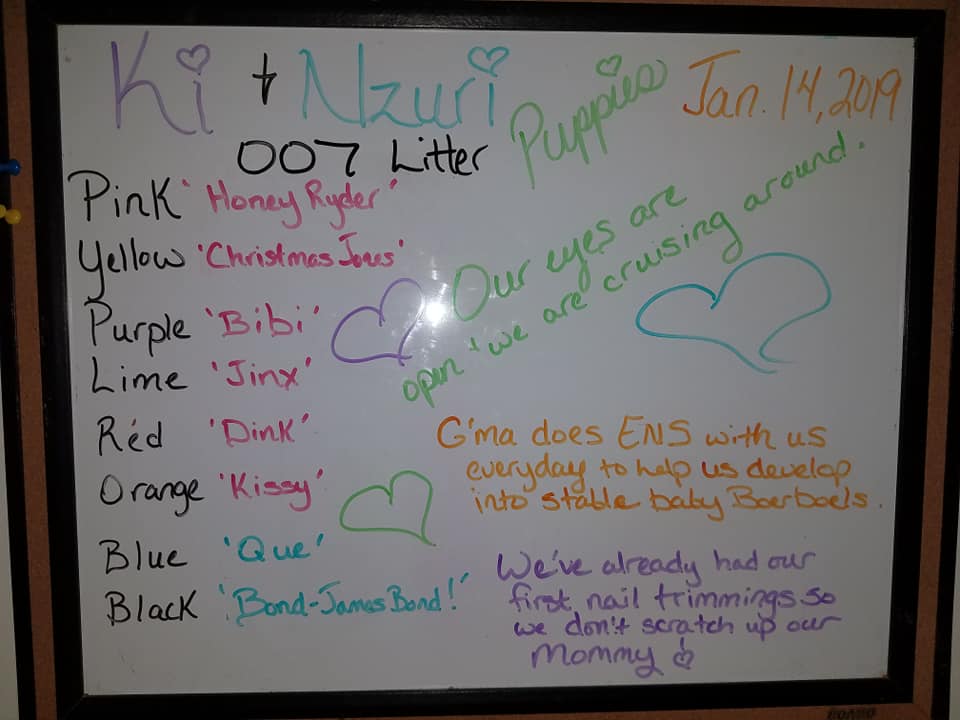 Ki + Nzuri Puppies
Jan. 14, 2019
007 Litter
Pink 'Honey Ryder'
Yellow 'Christmas Jones'
Purple 'Bibi'
Lime 'Jinx'
Red 'Dink'
Orange 'Kissy'
Blue 'Que'
Black 'Bond-James Bond!'
Our eyes are
open + we are cruising around.
G'ma does ENS with us
everyday to help us develop
into stable baby Boerboels.
We've already had our
first nail trimmings so
we don't scratch up our
Mommy